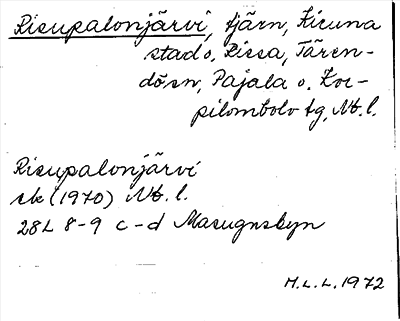 Risupalonjärvi, tjärn, Kiruna
stad o. Lissa, Tären-
dösn, Pajala o. Kor-
pilombolo tg, Nb. l.
Risupalonjärvi
ek (1970) Nb. l.
28L 8-9 c-d Masugnsbyn
H.L.L. 1972